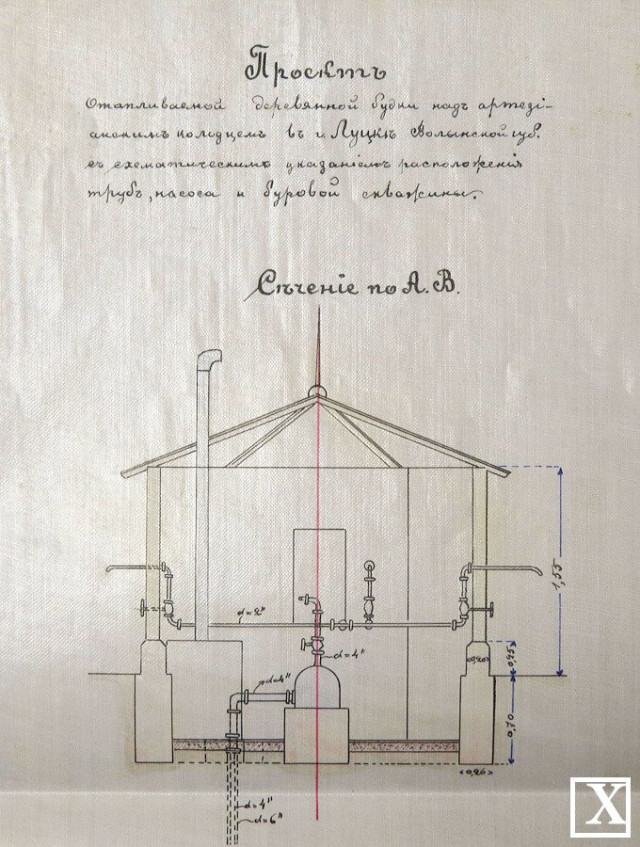 Проектъ
Отапливаемой деревянной будки надъ артезі-
анскимъ колодцемъ въ г. Луцкѣ Волынской губ.
съ схематическимъ указаніемъ расположенія
трубъ, насоса и буровой скважины.
Сѣченіе по А. В.
d=2"
d=4"
d=4"
0,20
0,45
0,70
0,26
d=4"
d=6"
X